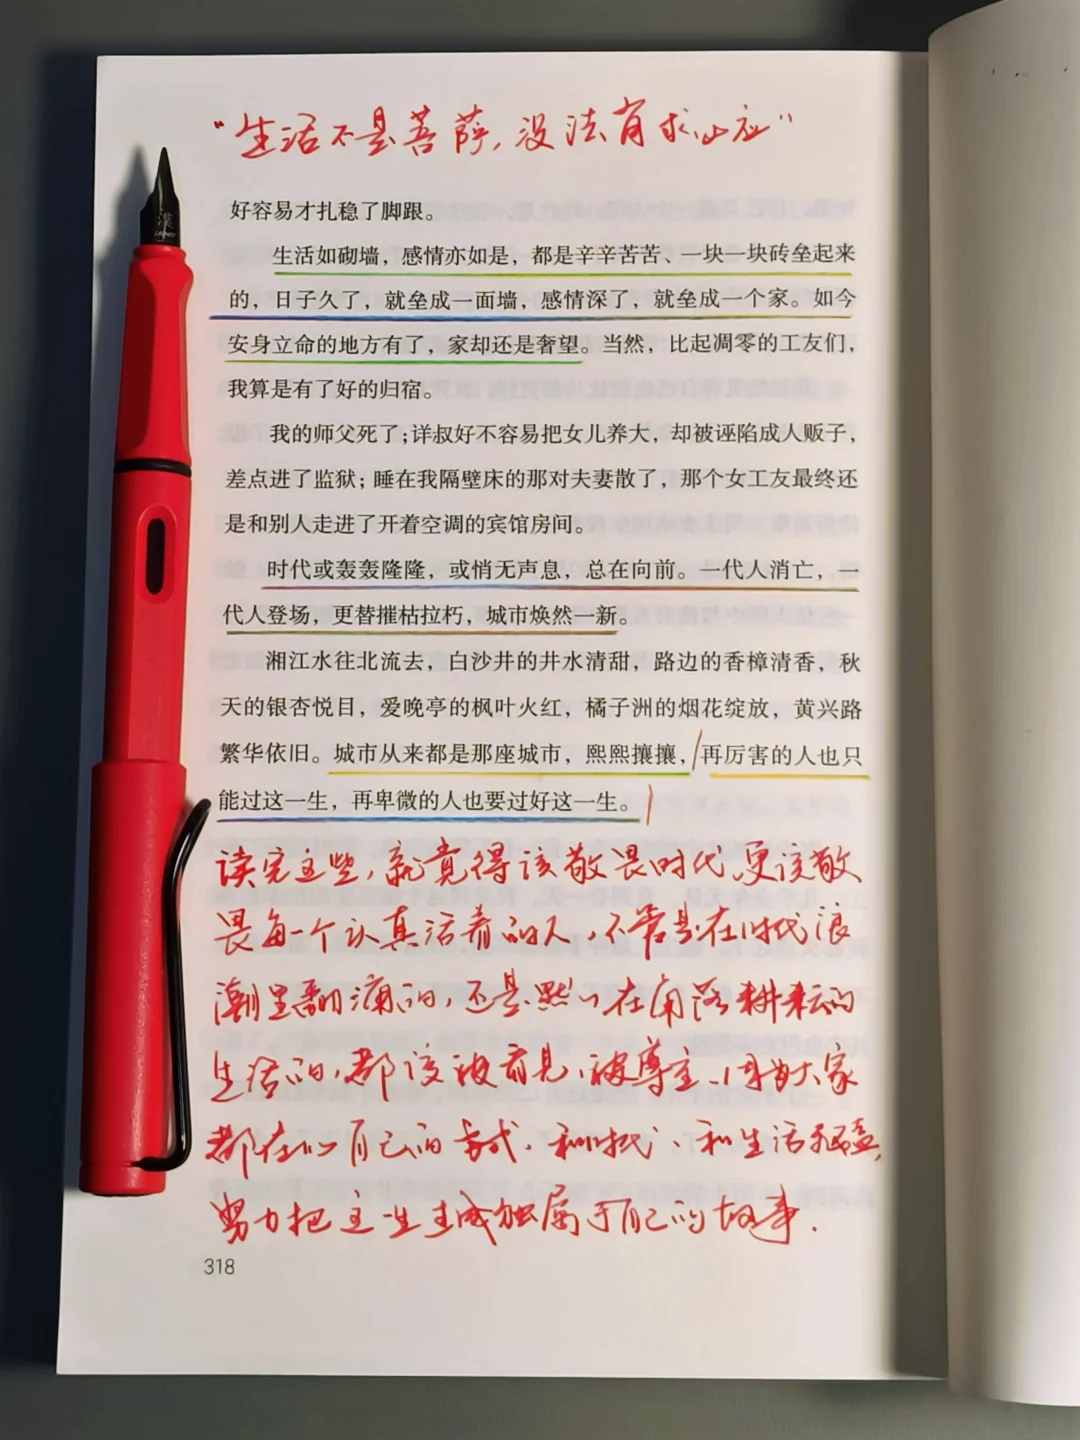 “生活不是菩萨,没法有求必应”
好容易才扎稳了脚跟。
生活如砌墙，感情亦如是，都是辛辛苦苦、一块一块砖垒起来
的，日子久了，就垒成一面墙，感情深了，就垒成一个家。如今
安身立命的地方有了，家却还是奢望。当然，比起凋零的工友们，
我算是有了好的归宿。
我的师父死了；详叔好不容易把女儿养大，却被诬陷成人贩子，
差点进了监狱；睡在我隔壁床的那对夫妻散了，那个女工友最终还
是和别人走进了开着空调的宾馆房间。
时代或轰轰隆隆，或悄无声息，总在向前。一代人消亡，一
代人登场，更替摧枯拉朽，城市焕然一新。
湘江水往北流去，白沙井的井水清甜，路边的香樟清香，秋
天的银杏悦目，爱晚亭的枫叶火红，橘子洲的烟花绽放，黄兴路
繁华依旧。城市从来都是那座城市，熙熙攘攘，再厉害的人也只
能过这一生，再卑微的人也要过好这一生。
读完这些,就觉得该敬畏时代,更该敬
畏每一个认真活着的人,不管是在时代浪
潮里翻涌的,还是默默在角落耕耘的
生活的,都该被看见,被尊重、因为大家
都在以自己的方式、和时代、和生活碰撞,
努力把这一生过成独属于自己的故事.
318
漢